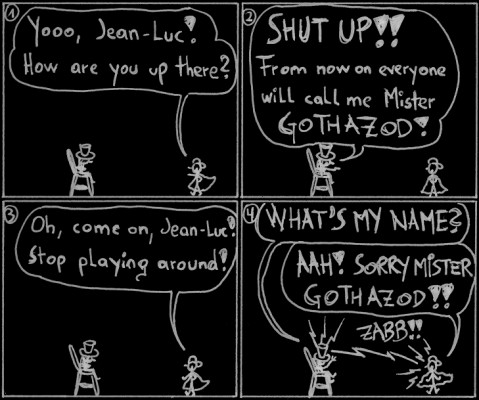 1
Yooo, Jean-Luc!
How are you up there?
2
SHUT UP!!
From now on everyone
will call me Mister
GOTHAZOD!
3
Oh, come on, Jean-Luc!
Stop playing around!
4
WHAT'S MY NAME?
AAH! SORRY MISTER
GOTHAZOD!!
ZABB!!